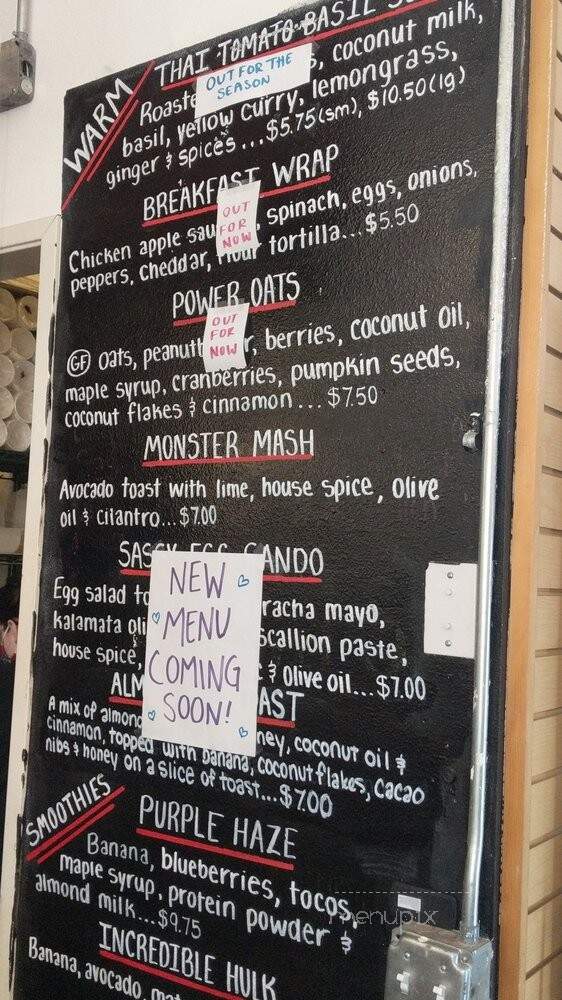 WARM
THAI TOMATO BASIL
OUT FOR THE
SEASON
coconut milk,
basil, yellow curry, lemongrass,
ginger & spices...$5.75(sm), $10.50(lg)
BREAKFAST WRAP
OUT
FOR
NOW
Chicken apple spinach, eggs, onions,
peppers, cheddar, flour tortilla...$5.50
POWER OATS
OUT
FOR
NOW
GF oats, berries, coconut oil,
maple syrup, cranberries, pumpkin seeds,
coconut flakes & cinnamon ... $7.50
MONSTER MASH
Avocado toast with lime, house spice, olive
oil & cilantro...$7.00
NEW
MENU
COMING
SOON!
Egg salad mayo,
kalamata scallion paste,
house spice, & olive oil...$7.00
A mix of coconut oil &
cinnamon, topped with banana, coconut flakes, cacao
nibs & honey on a slice of toast...$7.00
SMOOTHIES
PURPLE HAZE
Banana, blueberries, tocos,
maple syrup, protein powder &
almond milk...$9.75
menupix
INCREDIBLE HULK
Banana, avocado,